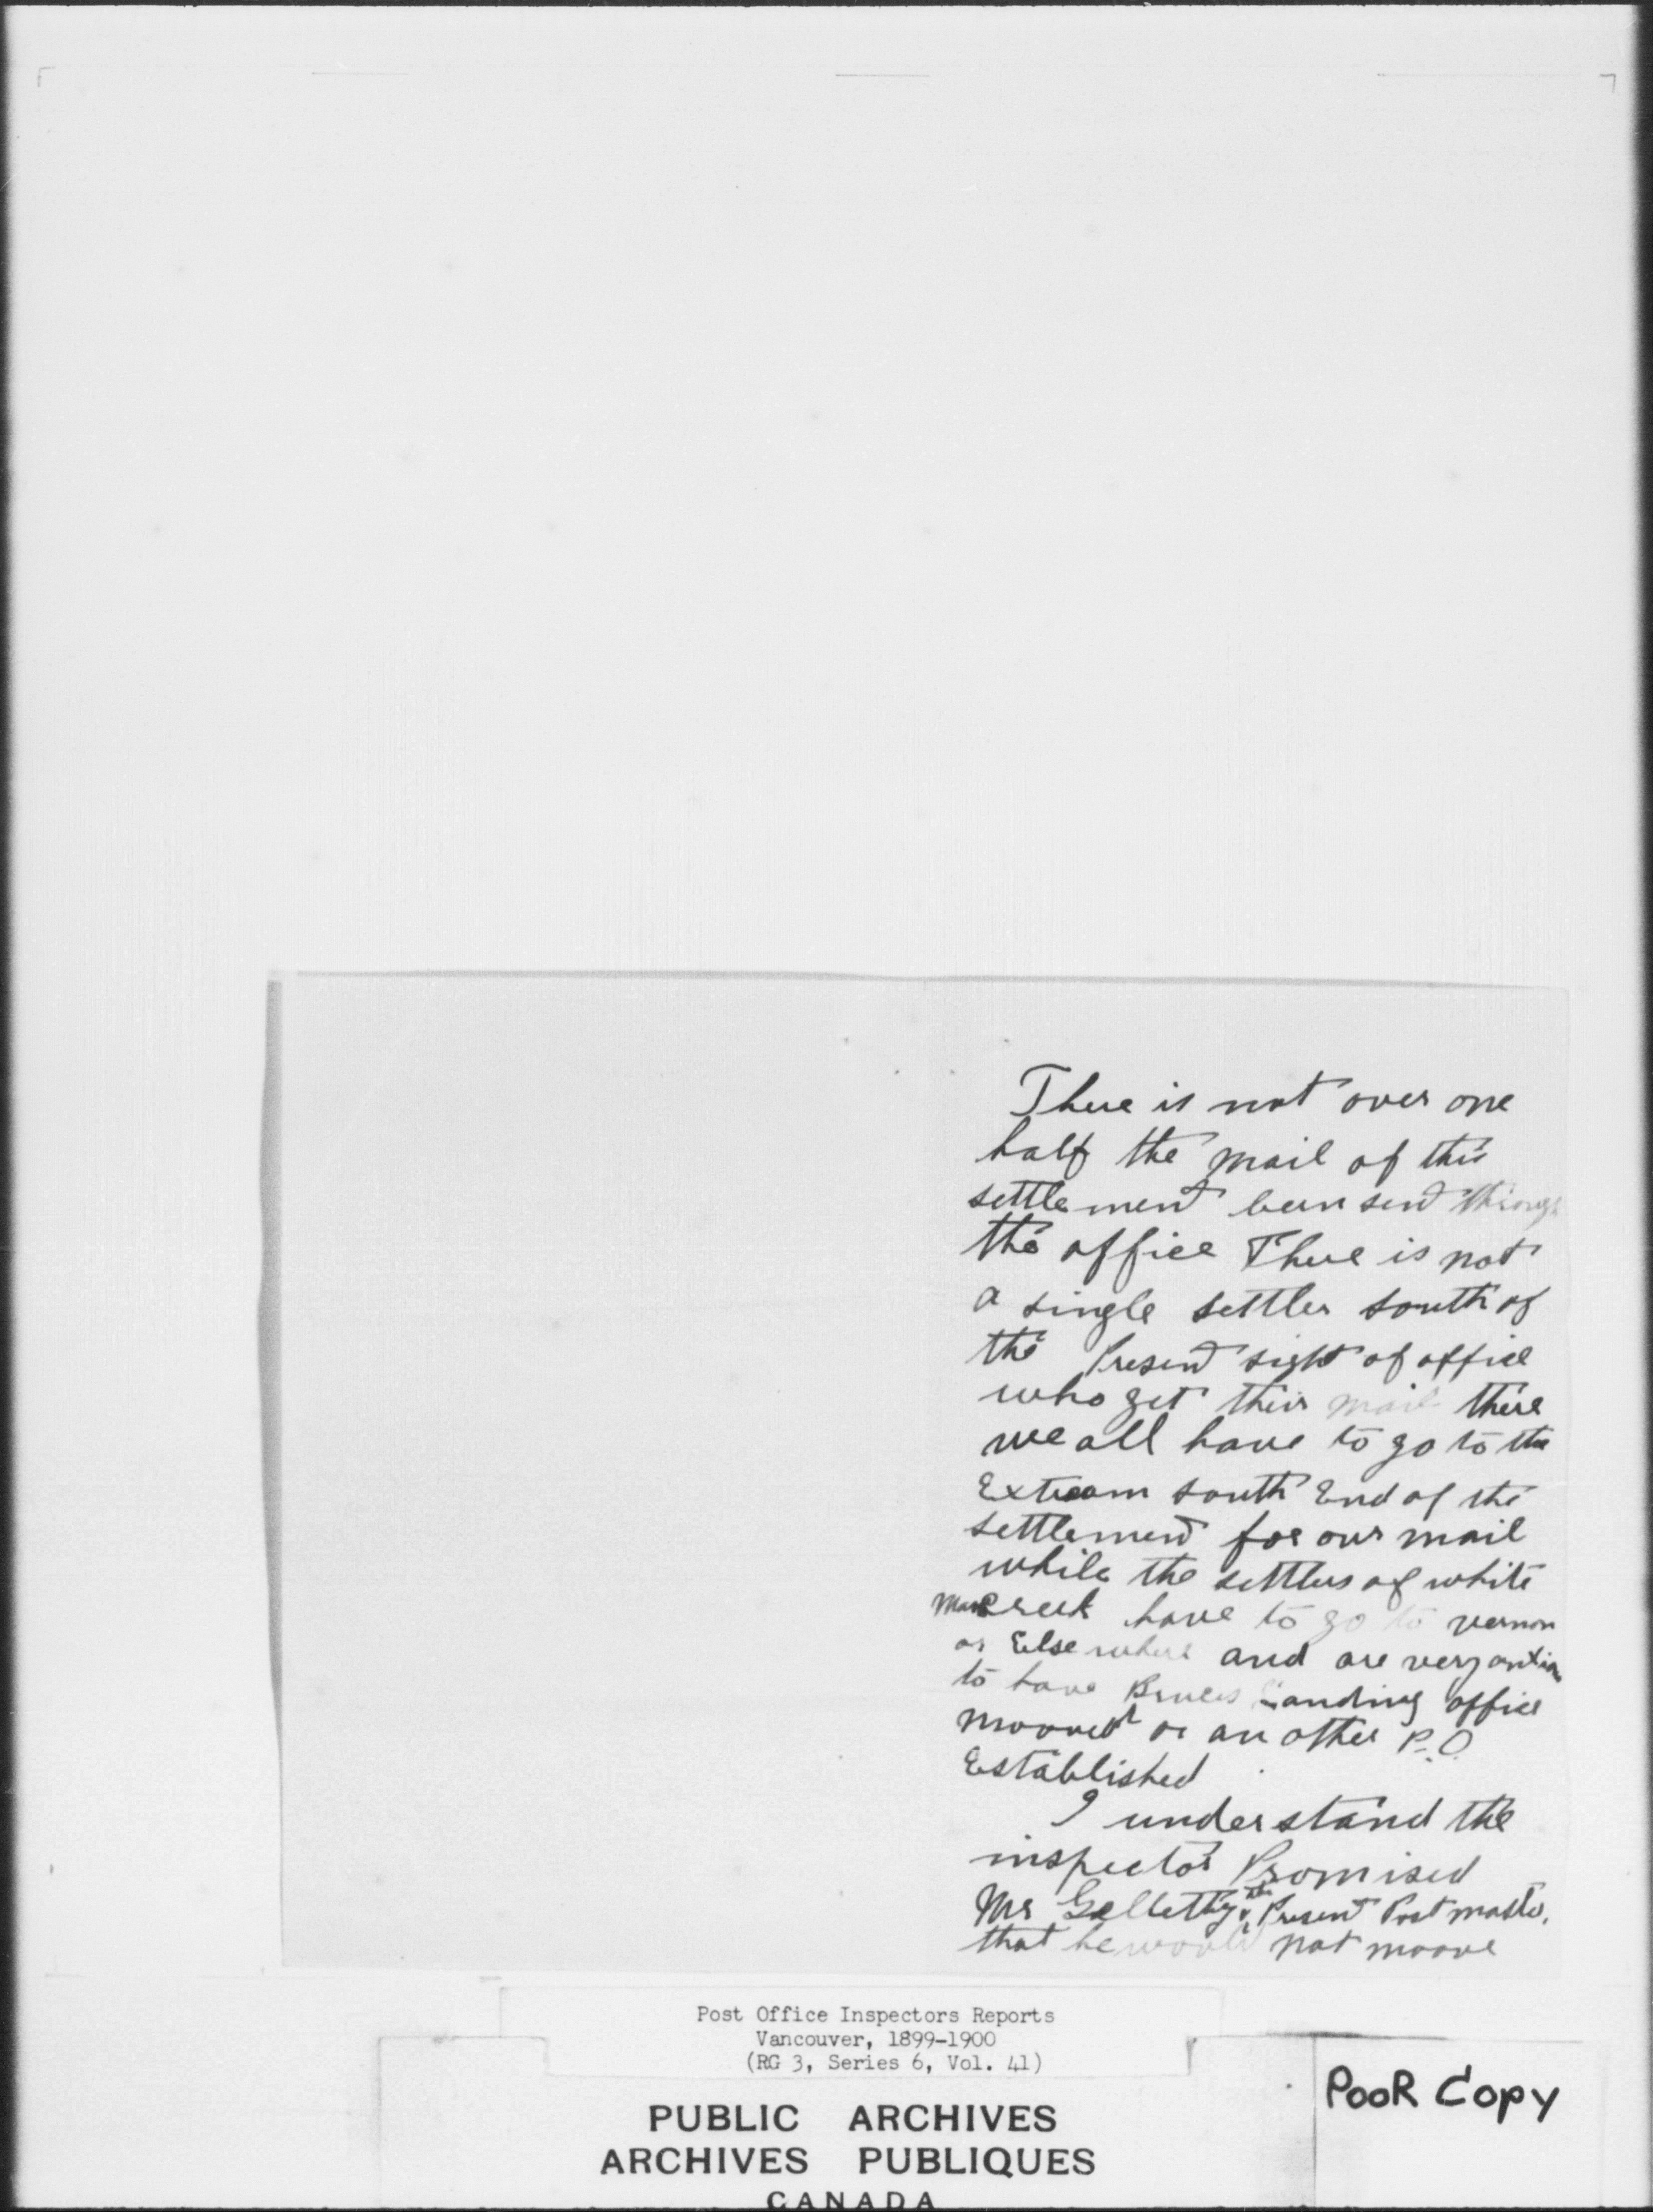 There is not over one
half the mail of this
settlement been sent through
the office There is not
a single settler south of
the Present sight of office
who get their mail there
we all have to go to the
Extream south End of the
settlement for our mail
while the settlers of white
man creek have to go to vernon
or Elsewhere and are very antious
to have Bruces Landing office
mooved or an other P.O.
Established
I understand the
inspector Promised
Mr Gelletly the Present Post master,
that he would not moove
Post Office Inspectors Reports
Vancouver, 1899-1900
(RG 3, Series 6, Vol. 41)
PUBLIC ARCHIVES
ARCHIVES PUBLIQUES
CANADA
POOR COPY